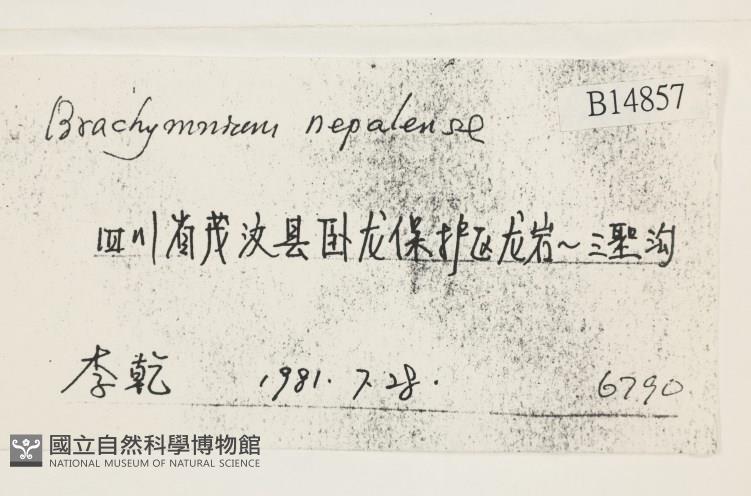 B14857
Brachymnium nepalense
四川省茂汶县卧龙保护区龙岩~三聖沟
李乾 1981.7.28. 6790
國立自然科學博物館
NATIONAL MUSEUM OF NATURAL SCIENCE